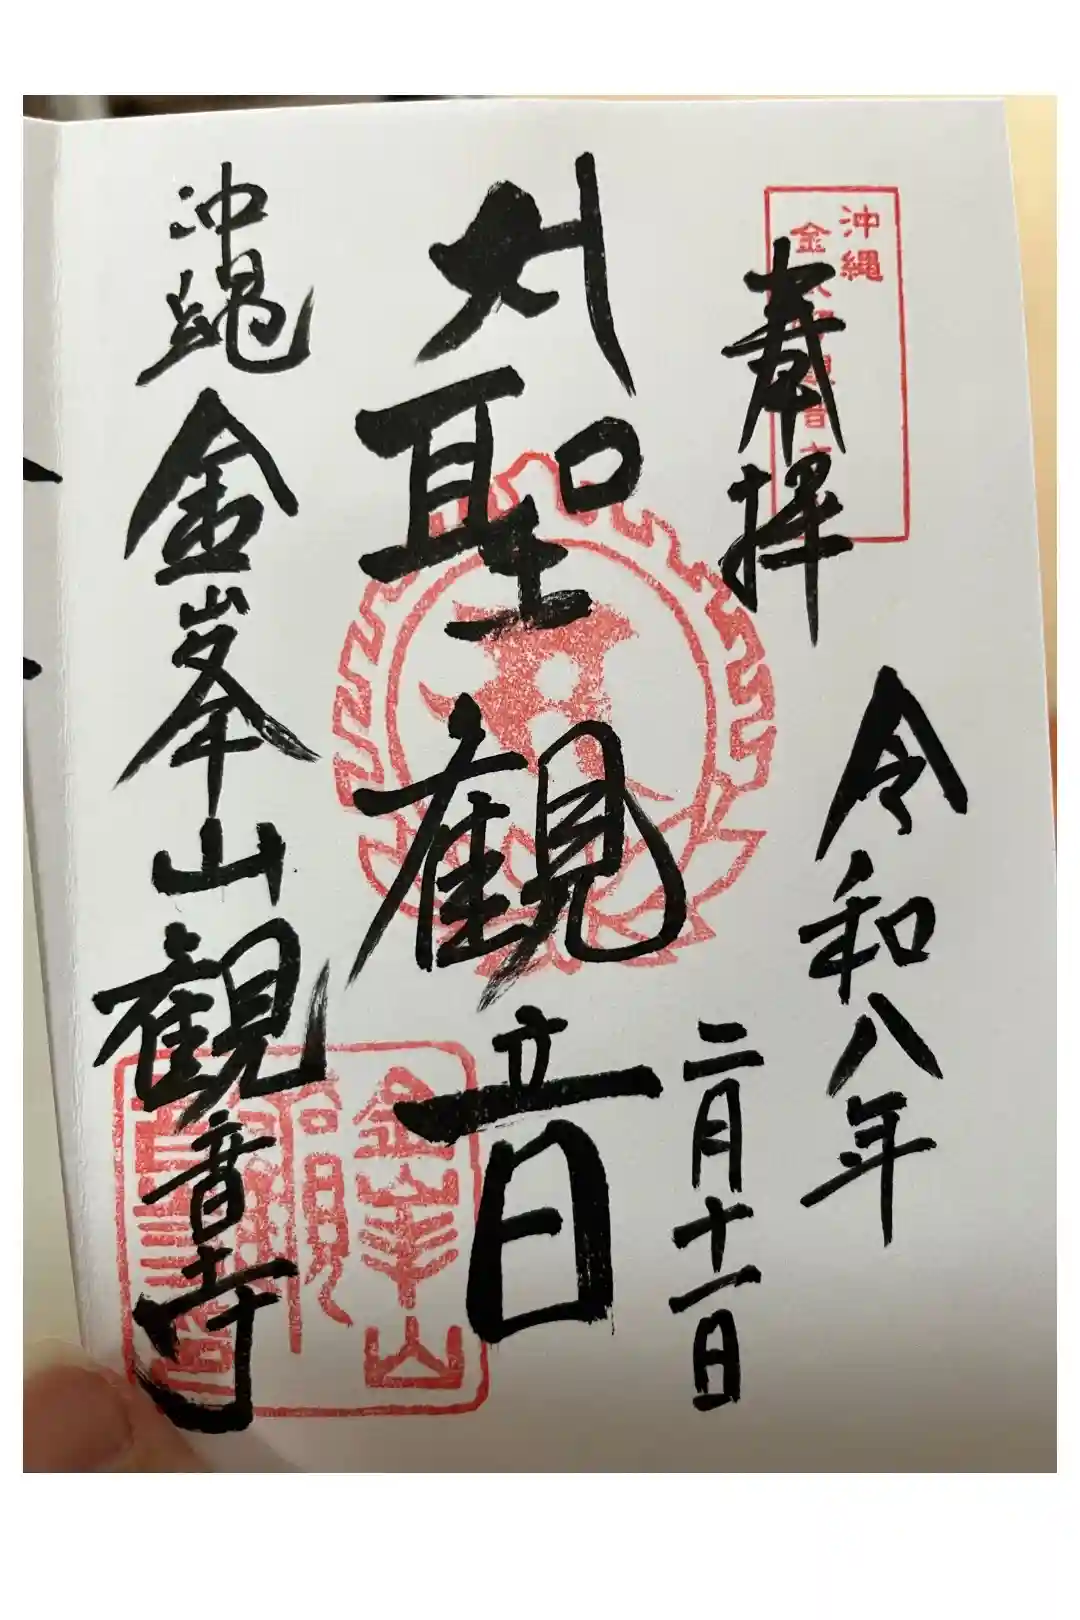 奉拝
令和八年
二月十一日
聖観音
沖縄
金峯山
観音寺
沖縄
金
金峯山